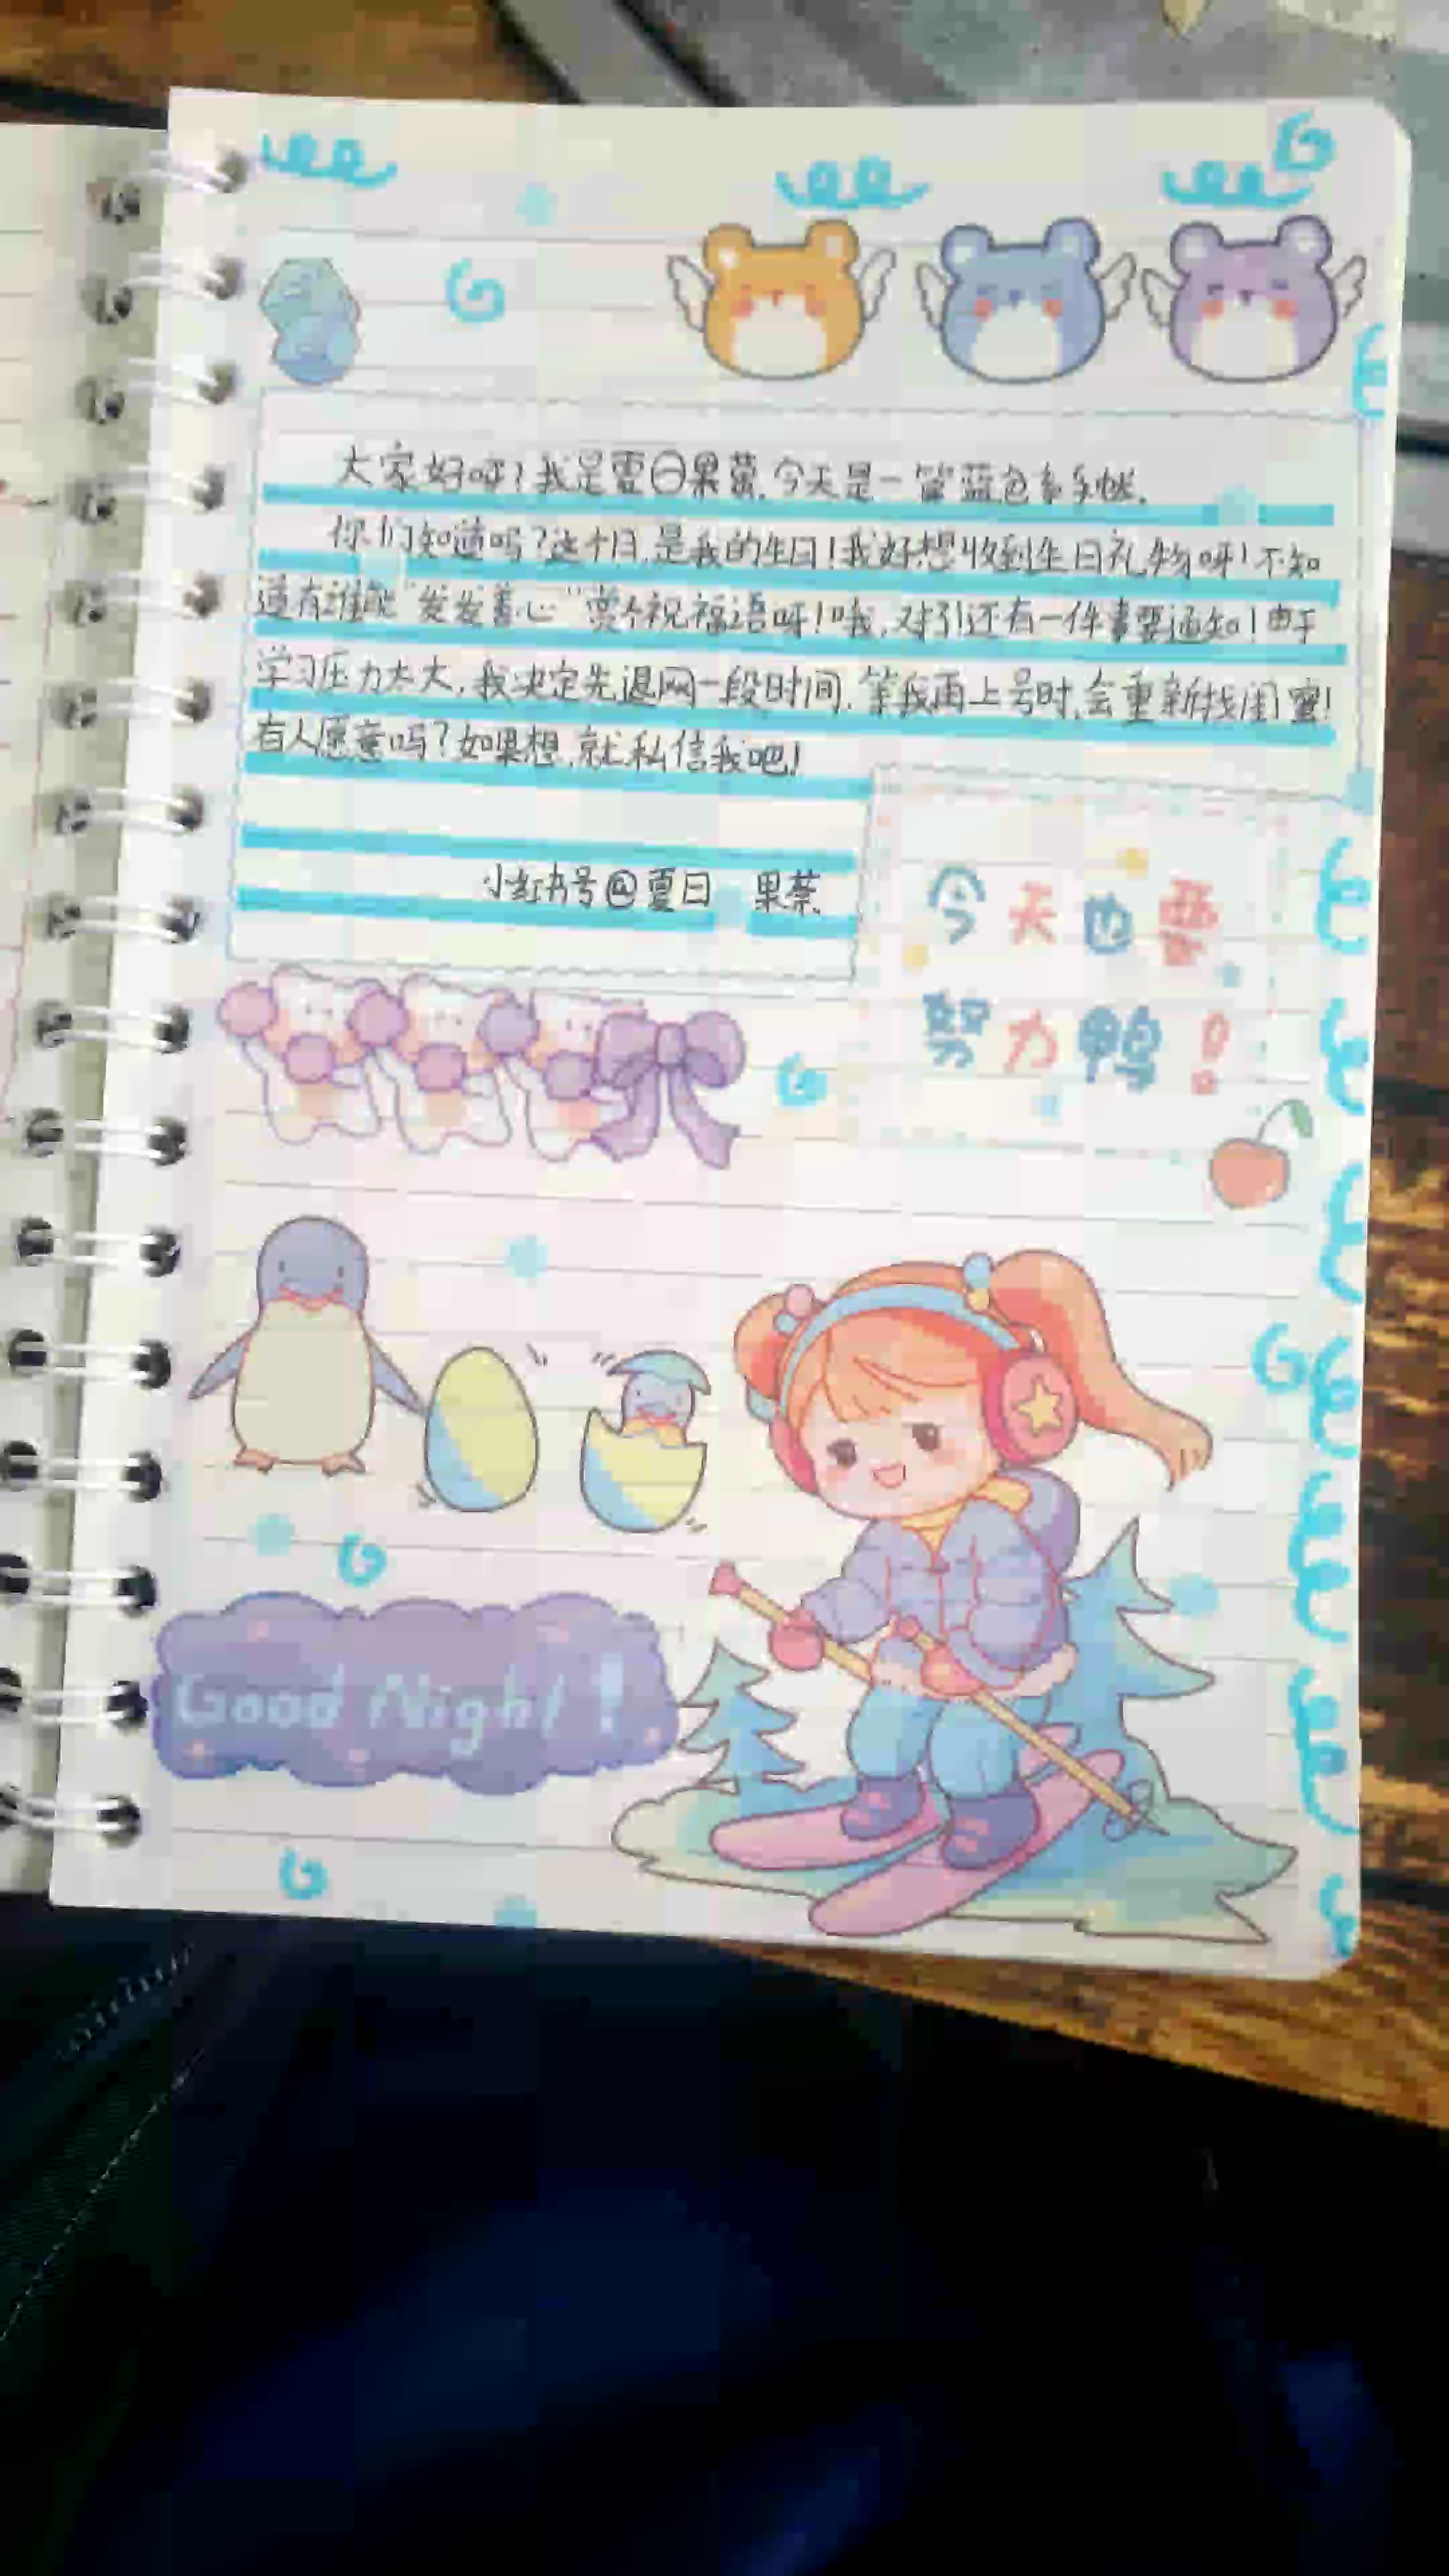 大家好呀?我是夏日果蔬.今天是一篇蓝色系手帐.
你们知道吗?这个月.是我的生日!我好想收到生日礼物呀!不知
道有谁能“发发善心”赏个祝福语呀!哦,对了!还有一件事要通知!由于
学习压力太大,我决定先退网一段时间.等我再上号时,会重新找闺蜜!
有人愿意吗?如果想,就私信我吧!
小红书号@夏日 果蔬
今天也要
努力鸭!
Good Night!